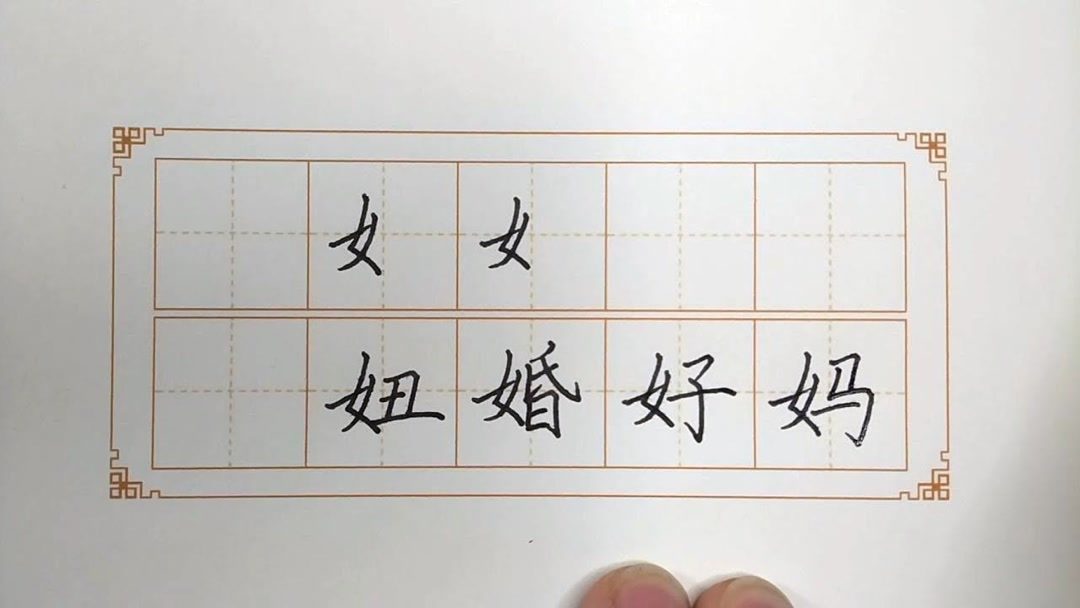 女 女
妞 婚 好 妈